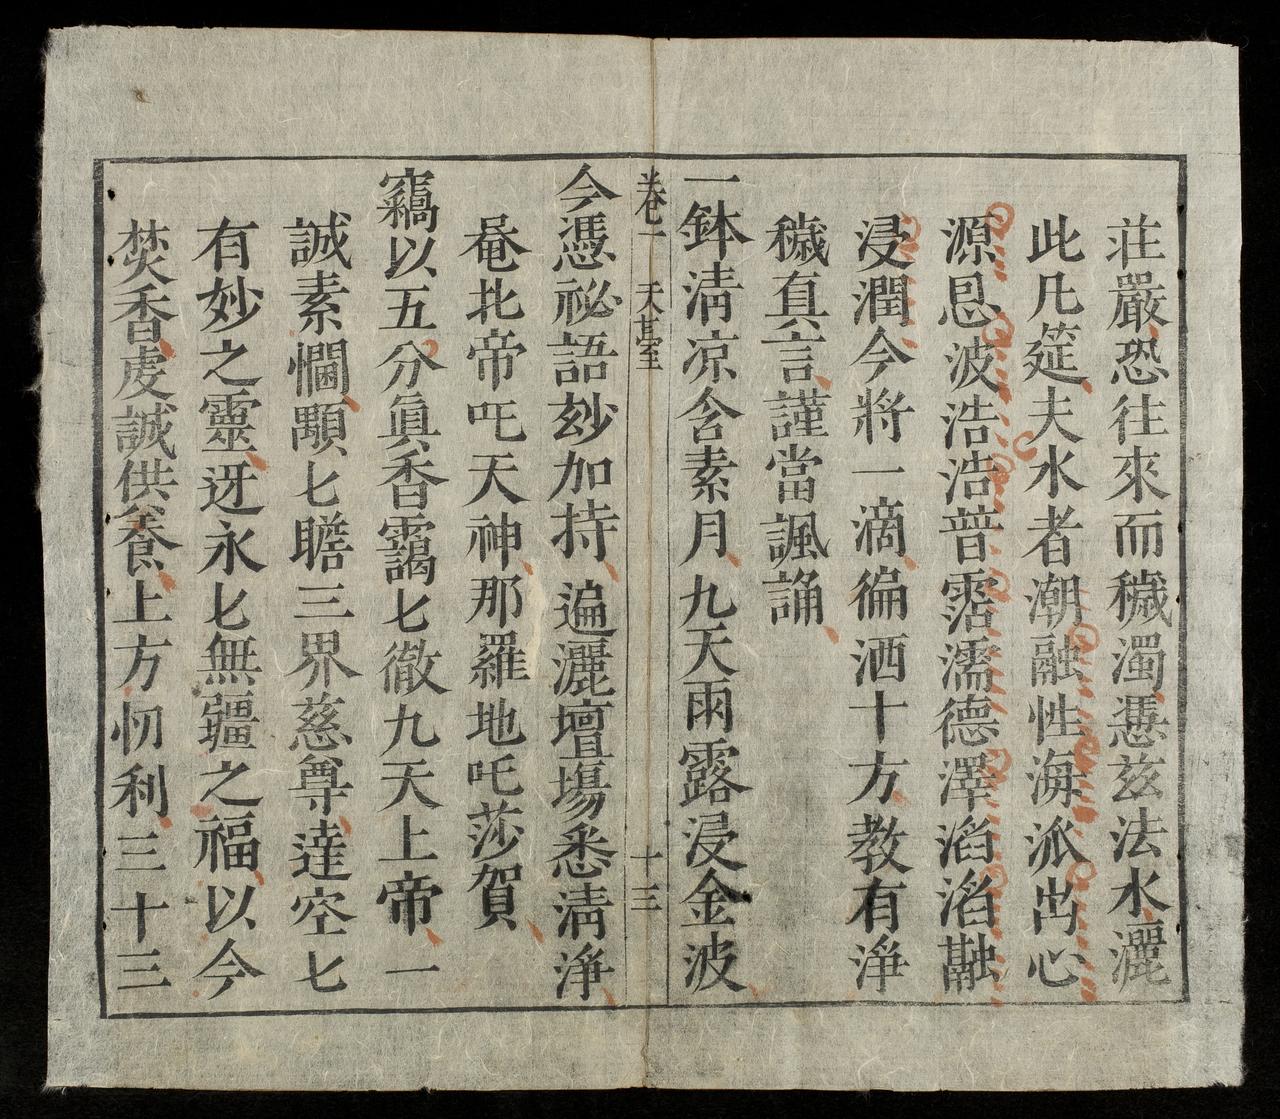 莊嚴恐往來而穢濁慿兹法水灑
此几筵夫水者潮融性海派出心
源恩波浩浩普霑濡德澤滔滔融
浸潤今將一滴徧洒十方教有淨
穢真言謹當諷誦
一鉢清凉含素月九天雨露浸金波
卷一 天臺 十三
今憑祕語玅加持遍灑壇場悉清淨
唵北帝吒天神那羅地吒莎賀
竊以五分眞香靄匕徹九天上帝一
誠素悃顒匕瞻三界慈尊達空匕
有妙之靈迓永匕無疆之福以今
焚香虔誠供養上方忉利三十三